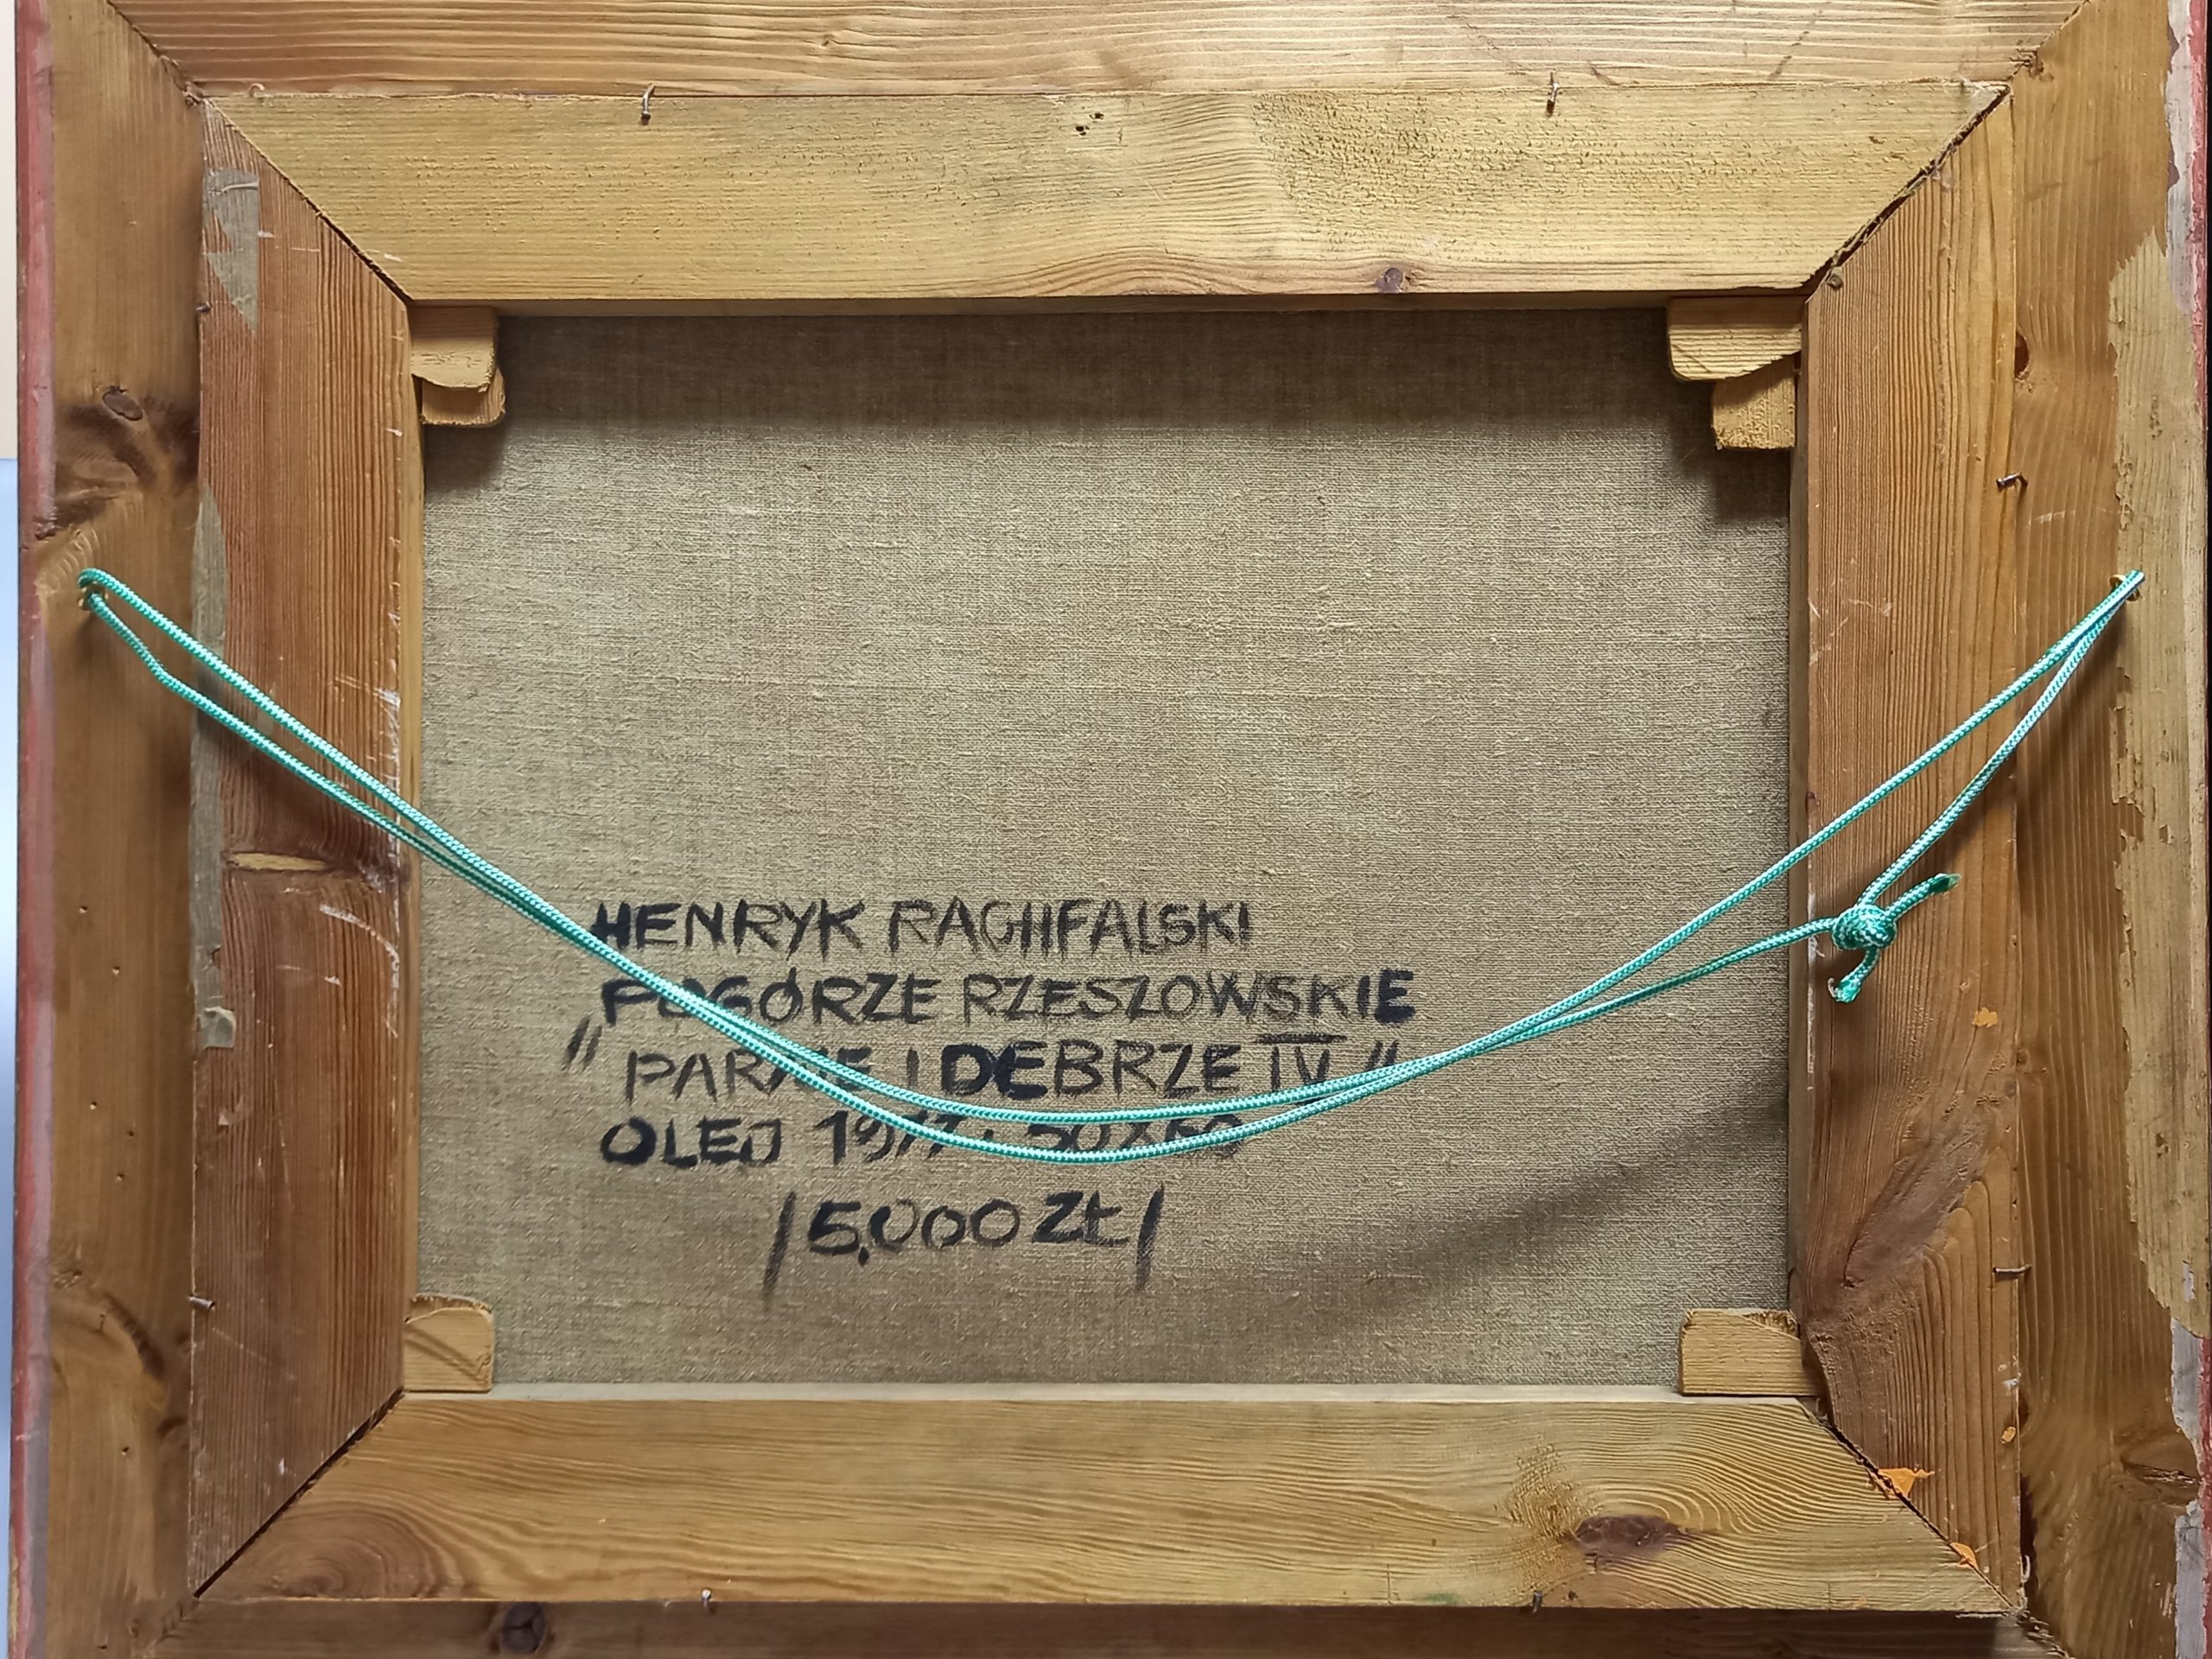 HENRYK RACHFALSKI
POGÓRZE RZESZOWSKIE
" PARNE I DEBRZE IV "
OLEJ 1977. 50X60
/5.000 ZŁ/